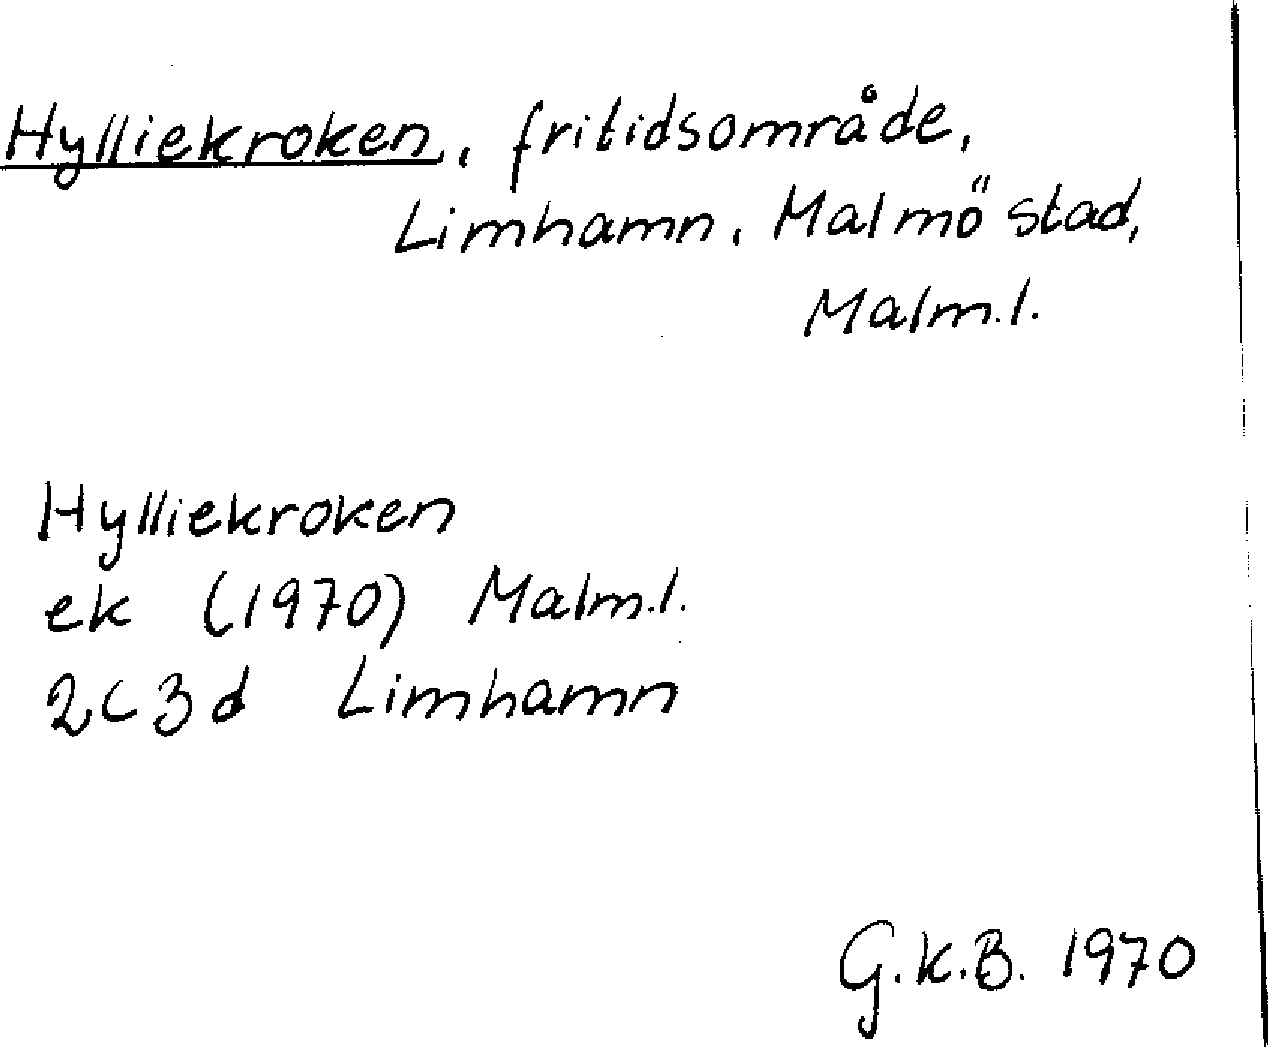 Hylliekroken, fritidsområde,
Limhamn, Malmö stad,
Malm.l.
Hylliekroken
ek (1970) Malm.l.
2C3d Limhamn
G.K.B. 1970